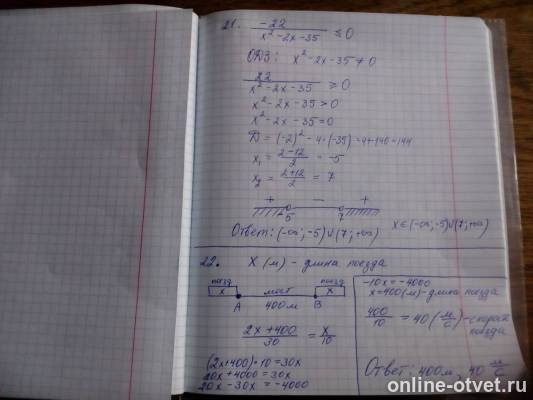 21. -22 / (x² - 2x - 35) ≤ 0
ОДЗ: x² - 2x - 35 ≠ 0
22 / (x² - 2x - 35) ≥ 0
x² - 2x - 35 > 0
x² - 2x - 35 = 0
D = (-2)² - 4·(-35) = 4+140=144
x₁ = (2-12)/2 = -5
x₂ = (2+12)/2 = 7
+ - +
-5 7
Ответ: (-∞; -5)∪(7; +∞)
x∈(-∞; -5)∪(7; +∞)
22. X (м) - длина поезда
поезд мост поезд
x 400м x
A B
(2x+400)/30 = x/10
(2x+400)·10 = 30x
20x + 4000 = 30x
20x - 30x = -4000
-10x = -4000
x=400(м)-длина поезда
400/10 = 40 (м/с) - скорость поезда
Ответ: 400м, 40 м/с
online-otvet.ru